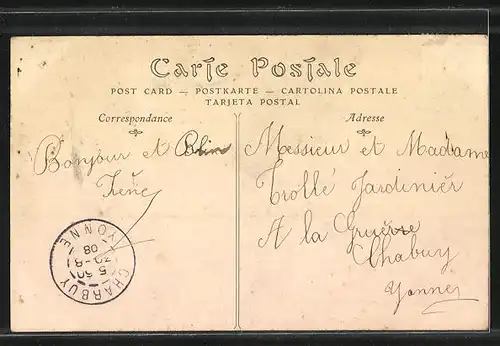 Carte Postale
POST CARD — POSTKARTE — CARTOLINA POSTALE
TARJETA POSTAL
Correspondance
Bonjour et
Irène
CHARBUY
YONNE
5 50
30-8
08
Adresse
Messieur et Madame
Trollé Jardinièr
A la
Chabuy
Yonne